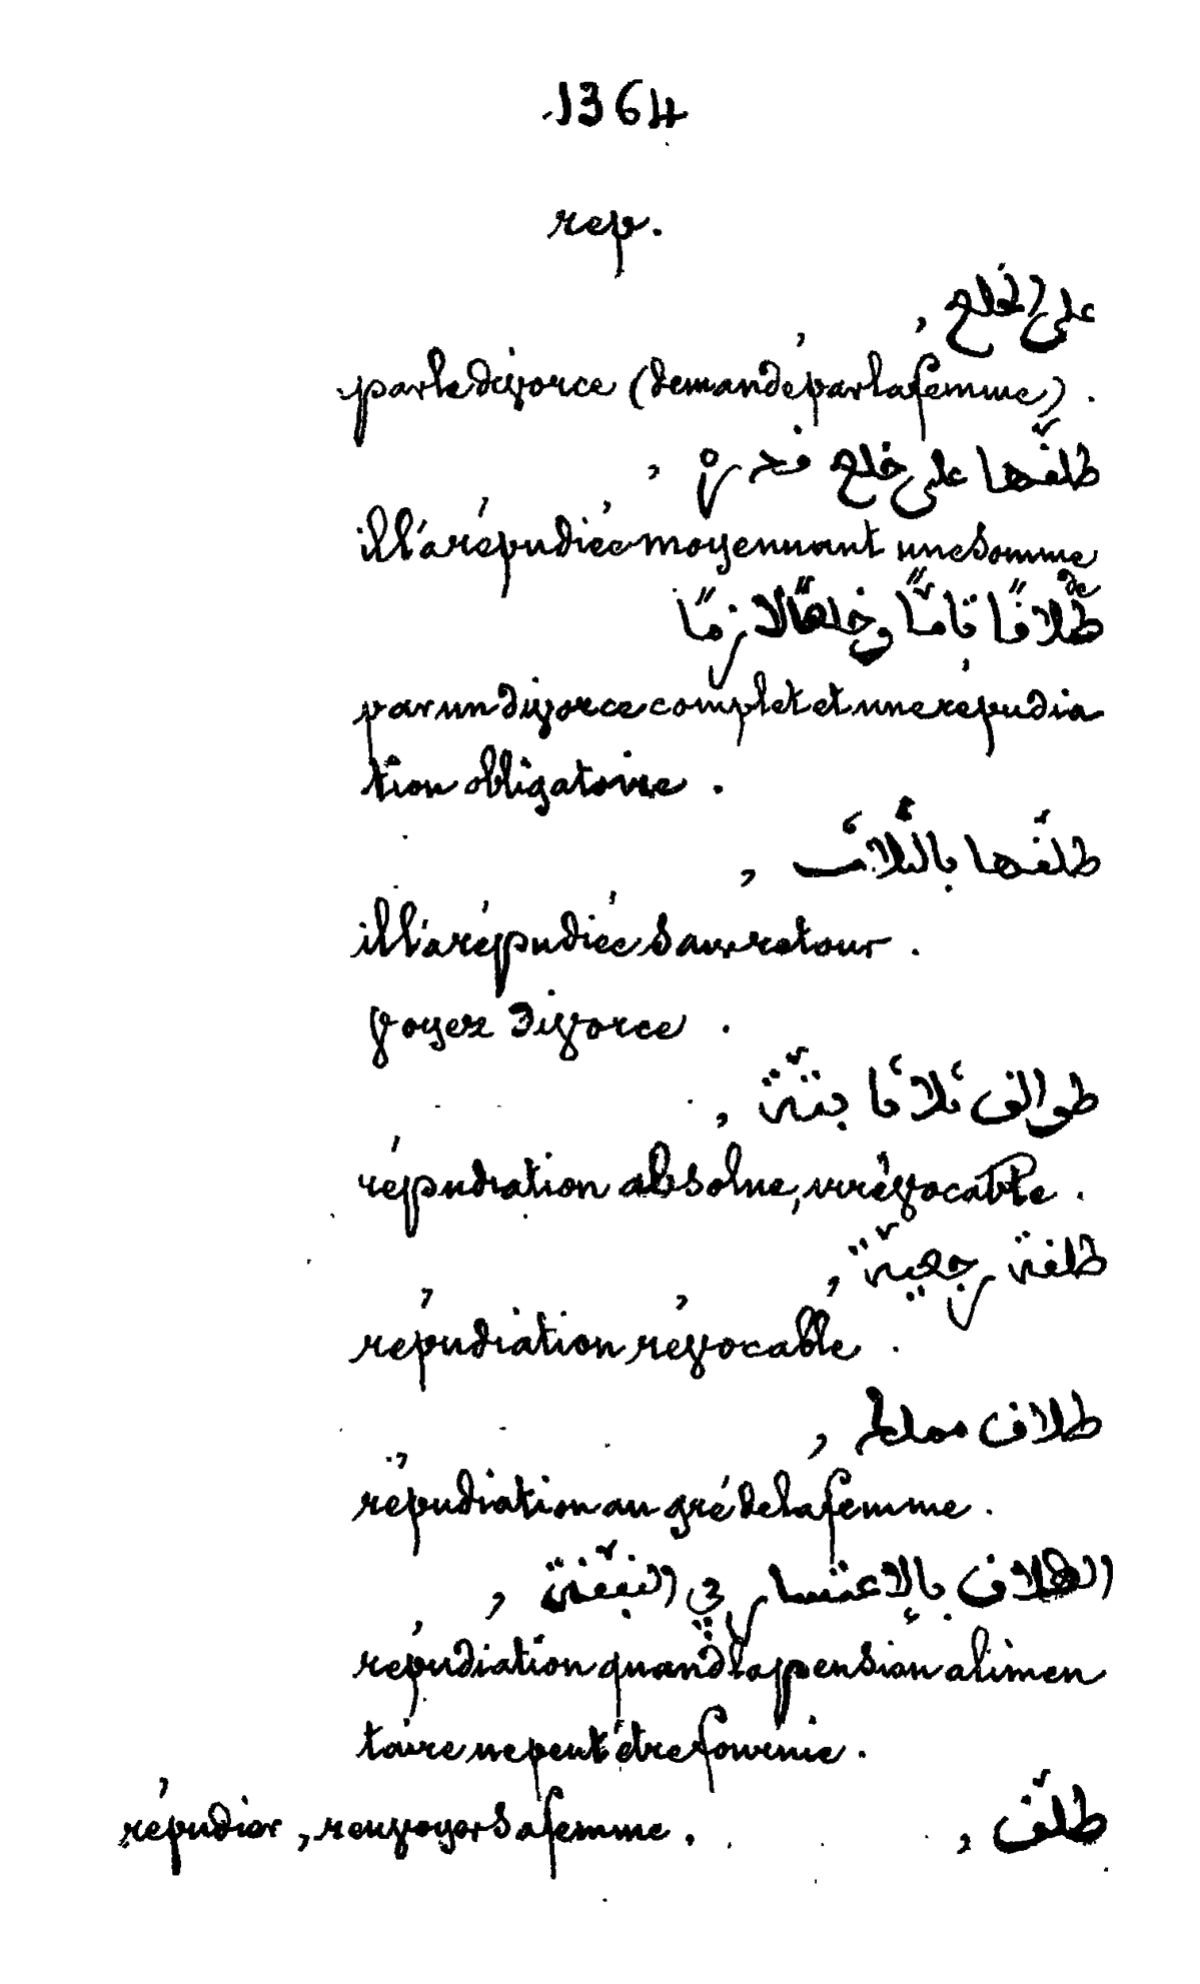 1364
rep.
على الخلع ,
par le divorce (demandé par la femme) .
طلّقها على خلع قدره ,
il l'a répudiée moyennant une somme
de
طلاقًا تامًّا وخلعًا لازمًا
par un divorce complet et une répudia
tion obligatoire .
طلّقها بالثلاث ,
il l'a répudiée sans retour .
Voyez Divorce .
طوالق ثلاثا بتّة ,
répudiation absolue, irrévocable .
طلقة رجعيّة ,
répudiation révocable .
طلاق مملك ,
répudiation au gré de la femme .
الطلاق بالإعتسار في النفقة ,
répudiation quand la pension alimen
taire ne peut être fournie .
répudier , renvoyer sa femme . طلّق ,